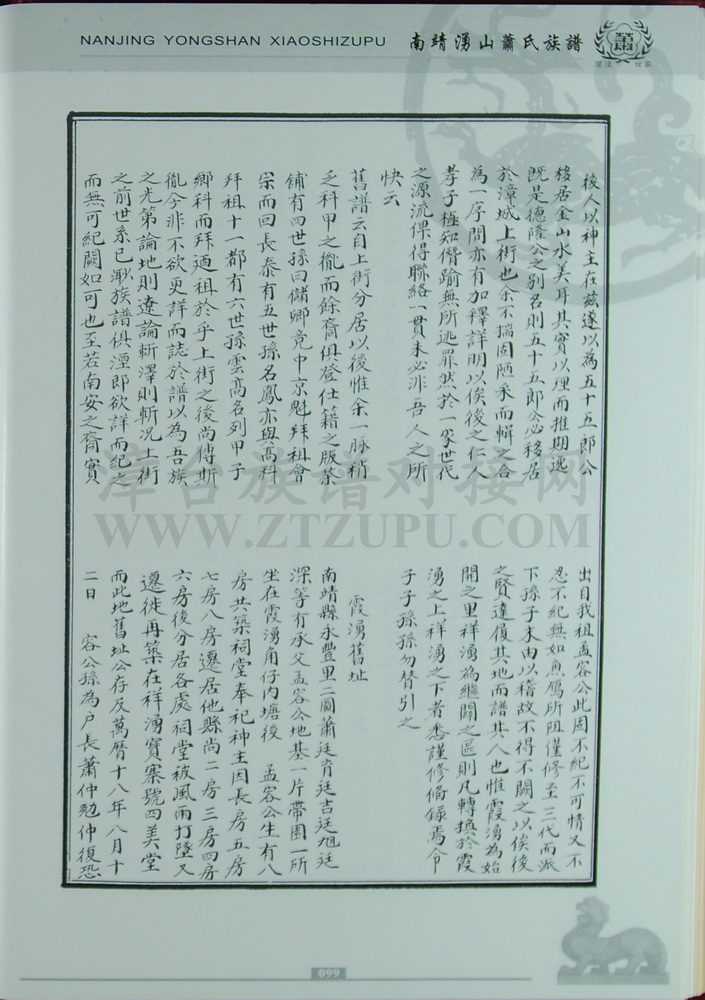 NANJING YONGSHAN XIAOSHIZUPU
南靖湧山蕭氏族譜
蕭
後人以神主在茲遂以為五十五郎公
移居金山水美耳其實以理而推期逸
既是德隆公之別名則五十五郎公必移居
於漳城上街也余不揣固陋采而輯之合
為一序間亦有加釋詳明以俟後之仁人
孝子極知僭踰無所逃罪然於一家世代
之源流俾得聯絡一貫未必非吾人之所
快云
舊譜云自上街分居以後惟余一脉稍
乏科甲之胤而餘裔俱登仕籍之版茶
舖有四世孫曰儲卿竟中京魁拜祖會
宗而回長泰有五世孫名鳳亦與高科
拜祖十一都有六世孫雲高名列甲子
鄉科而拜廻祖於乎上街之後尚傳斯
胤今非不欲更詳而誌於譜以為吾族
之光第論地則遼論斬澤則斬況上街
之前世系已渺族譜俱湮即欲詳而紀之
而無可紀闕如可也至若南安之裔實
出自我祖孟容公此固不紀不可情又不
忍不紀無如魚鴈所阻僅修至三代而派
下孫子未由以稽故不得不闕之以俟後
之賢達履其地而譜其人也惟霞湧為始
開之里祥湧為繼開之區則凡轉換於霞
湧之上祥湧之下者悉謹修備錄焉令
子子孫孫勿替引之
霞湧舊址
南靖縣永豐里二圖蕭廷肯廷吉廷旭廷
深等有承父孟容公地基一片帶園一所
坐在霞湧角仔內塘後 孟容公生有八
房共築祠堂奉祀神主因長房五房
七房八房遷居他縣尚二房三房四房
六房後分居各處祠堂被風雨打墜又
遷徙再築在祥湧寶寨號四美堂
而此地舊址公存及萬曆十八年八月十
二日 容公孫為户長蕭仲勉仲復恐
津台族谱对接网
WWW.ZTZUPU.COM
099